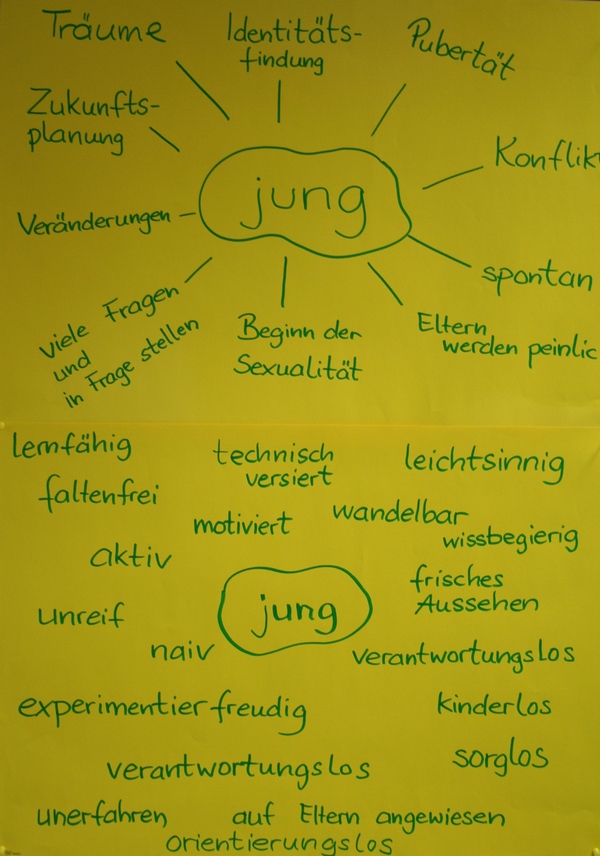 Träume
Identitäts-
findung
Pubertät
Zukunfts-
planung
Konflik
jung
Veränderungen
spontan
viele Fragen
und
in Frage stellen
Beginn der
Sexualität
Eltern
werden peinlic
lernfähig
technisch
versiert
leichtsinnig
faltenfrei
motiviert
wandelbar
wissbegierig
aktiv
frisches
Aussehen
jung
unreif
naiv
verantwortungslos
experimentierfreudig
kinderlos
verantwortungslos
sorglos
unerfahren
auf Eltern angewiesen
orientierungslos